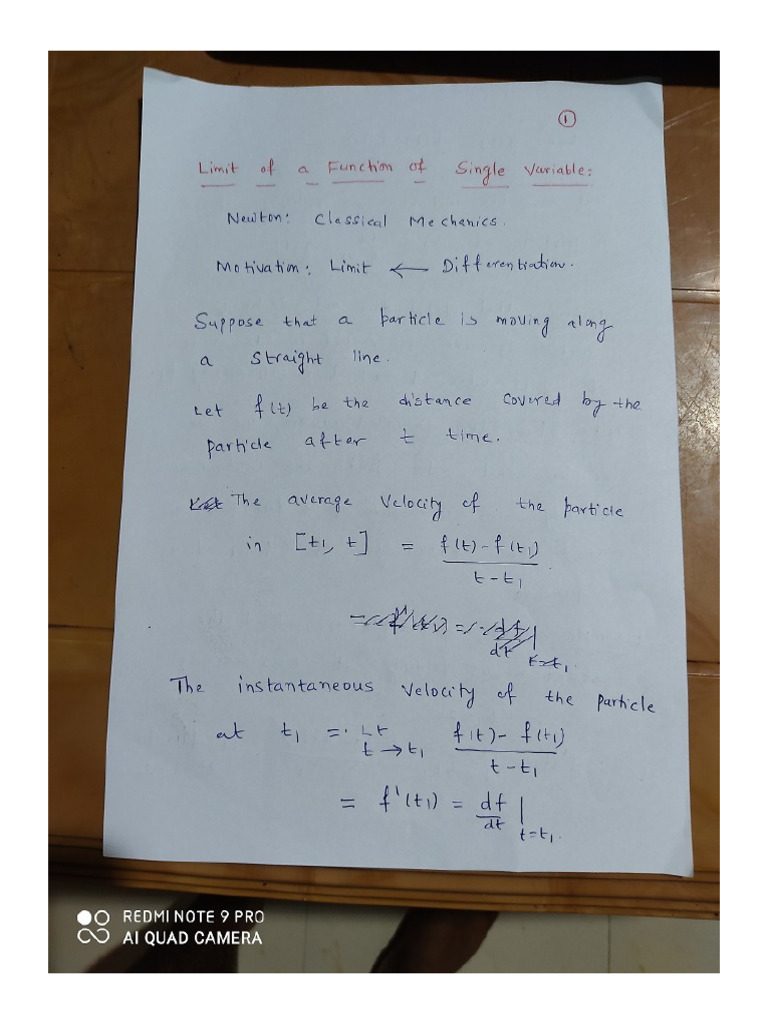 ①
Limit of a Function of Single Variable:
Newton: Classical Mechanics.
Motivation: Limit ← Differentiation.
Suppose that a particle is moving along
a straight line.
Let f(t) be the distance covered by the
particle after t time.
The average velocity of the particle
in [t₁, t] = f(t)-f(t₁) / t-t₁
The instantaneous velocity of the particle
at t₁ = Lt t→t₁ f(t)-f(t₁) / t-t₁
= f'(t₁) = df/dt | t=t₁.
REDMI NOTE 9 PRO
AI QUAD CAMERA